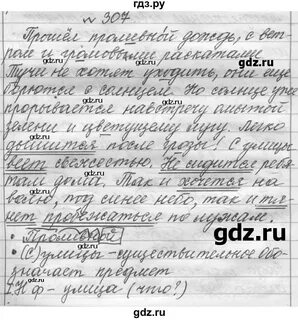 № 307
Прошёл проливной дождь, с вет-
ром и громовыми раскатами.
Тучи не хотят уходить, они ещё
борются с солнцем. Но солнце уже
прорывается навстречу омытой
зелени и цветущему лугу. Легко
дышится после грозы! С улицы
веет свежестью. Не сидится ребя-
там дома. Так и хочется на
волю, под синее небо, так и тя-
нет пробежаться по лужам.
(С) улицы - существительное обо-
значает предмет
Н.ф - улица (что?)